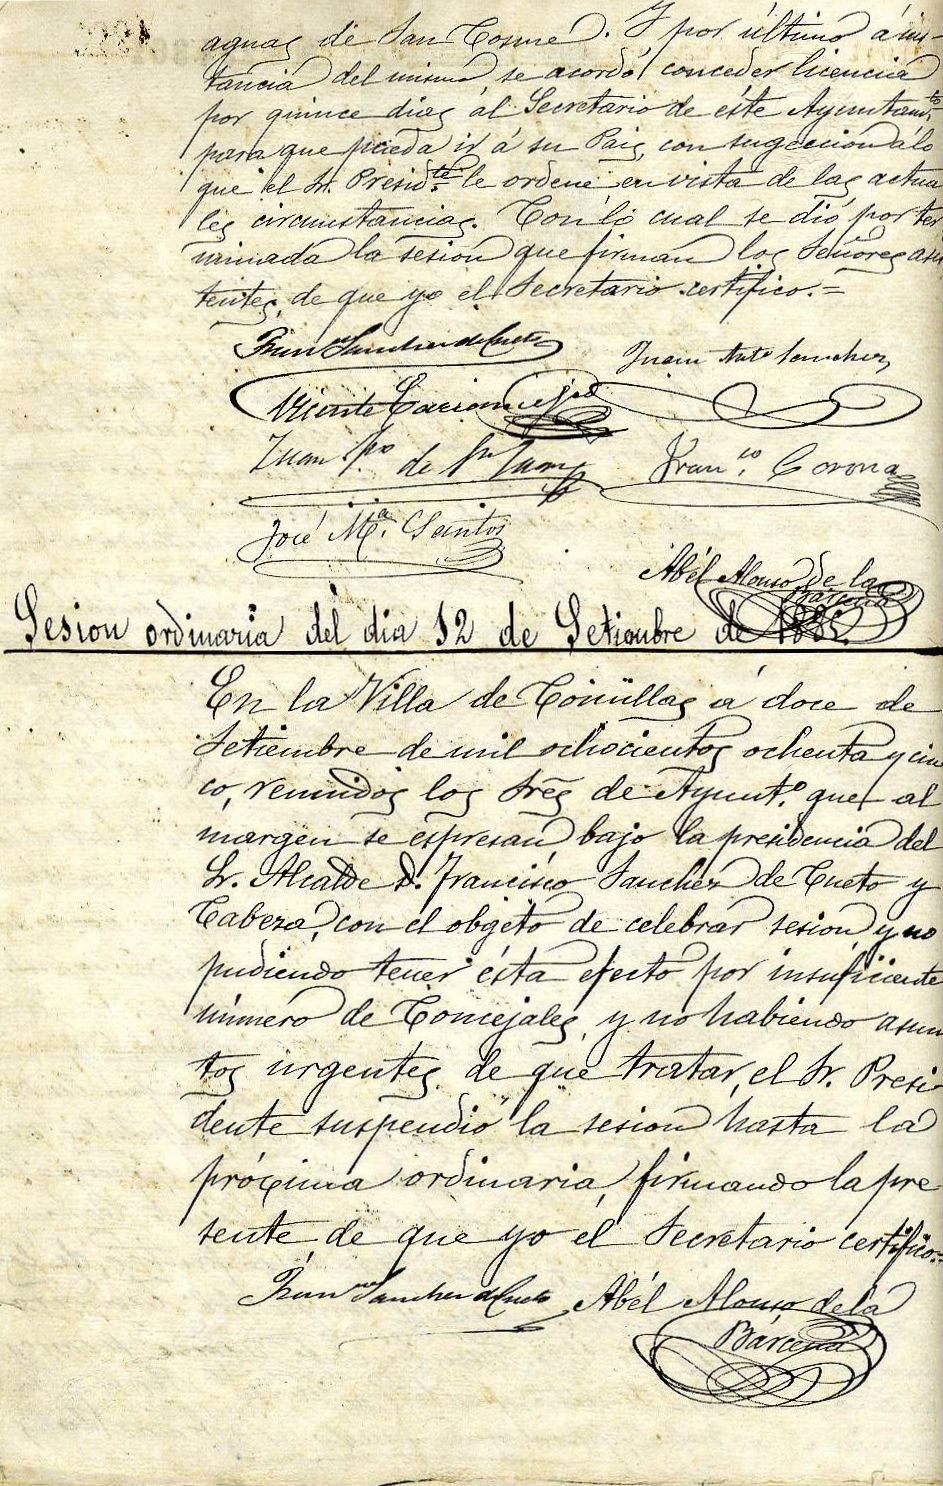 aguas de San Cosme. Y por último á ins-
tancia del mismo se acordó conceder licencia
por quince dias al Secretario de éste Ayuntam.to
para que pueda ir á su Pais, con sugeccion á lo
que el Sr. Presid.te le ordene en vista de las actua
les circunstancias. Con lo cual se dió por ter
minada la sesion que firman los Señores asis
tentes, de que yo el Secretario certifico.=
Fran.co Sanchez de Cueto Juan Anto Sanchez
Vicente
Juan P. de Sn Juan Fran.co Corona
José M.a Santos
Abél Alonso de la
Bárcena
Sesion ordinaria del dia 12 de Setiembre de 1885
En la Villa de Comillas á doce de
Setiembre de mil ochocientos ochenta y cin
co, reunidos los Sres de Ayunt.o que al
margen se espresan bajo la presidencia del
Sr. Alcalde D. Francisco Sanchez de Cueto y
Cabeza, con el obgeto de celebrar sesion y no
pudiendo tener ésta efecto por insuficiente
número de Concejales, y no habiendo asun
tos urgentes de que tratar, el Sr. Presi
dente suspendió la sesion hasta la
próxima ordinaria, firmando la pre
sente de que yo el Secretario certifico.=
Fran.co Sanchez de Cueto Abél Alonso de la
Bárcena